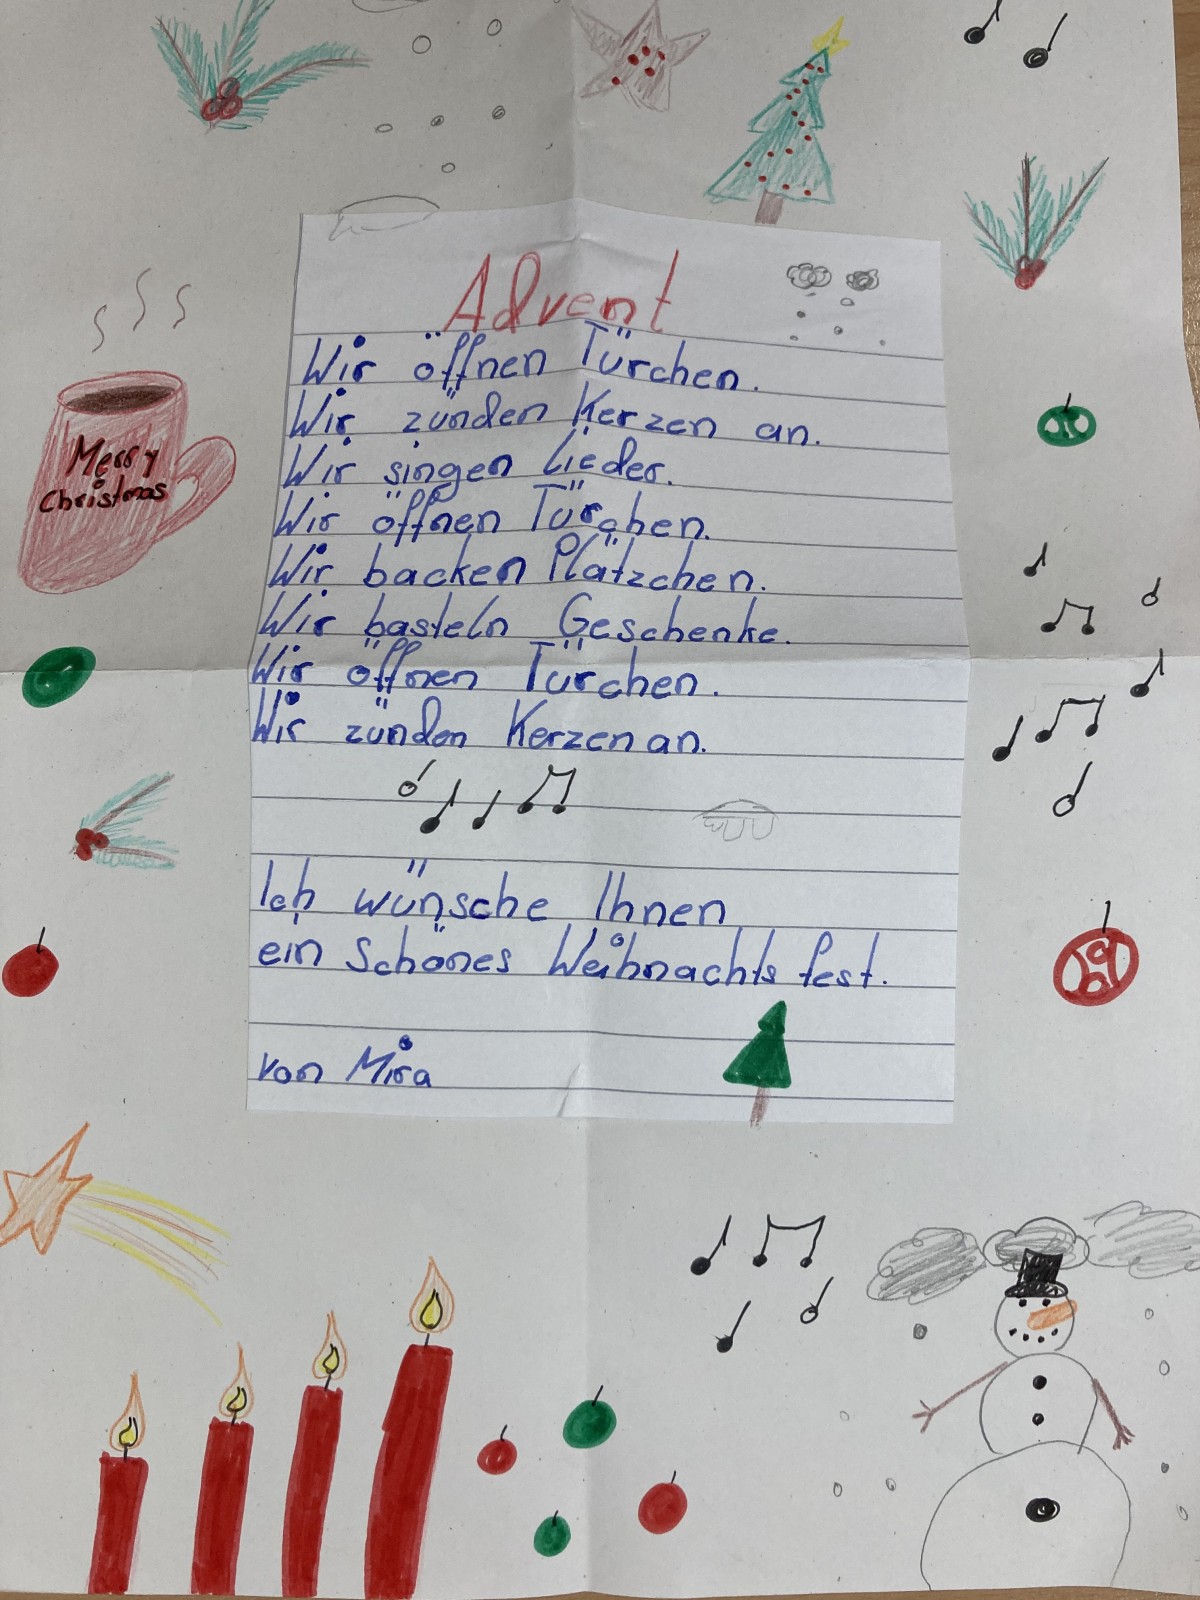 Advent
Wir öffnen Türchen.
Wir zünden Kerzen an.
Wir singen Lieder.
Wir öffnen Türchen.
Wir backen Plätzchen.
Wir basteln Geschenke.
Wir öffnen Türchen.
Wir zünden Kerzen an.
Ich wünsche Ihnen
ein schönes Weihnachtsfest.
von Mira
Merry
Christmas